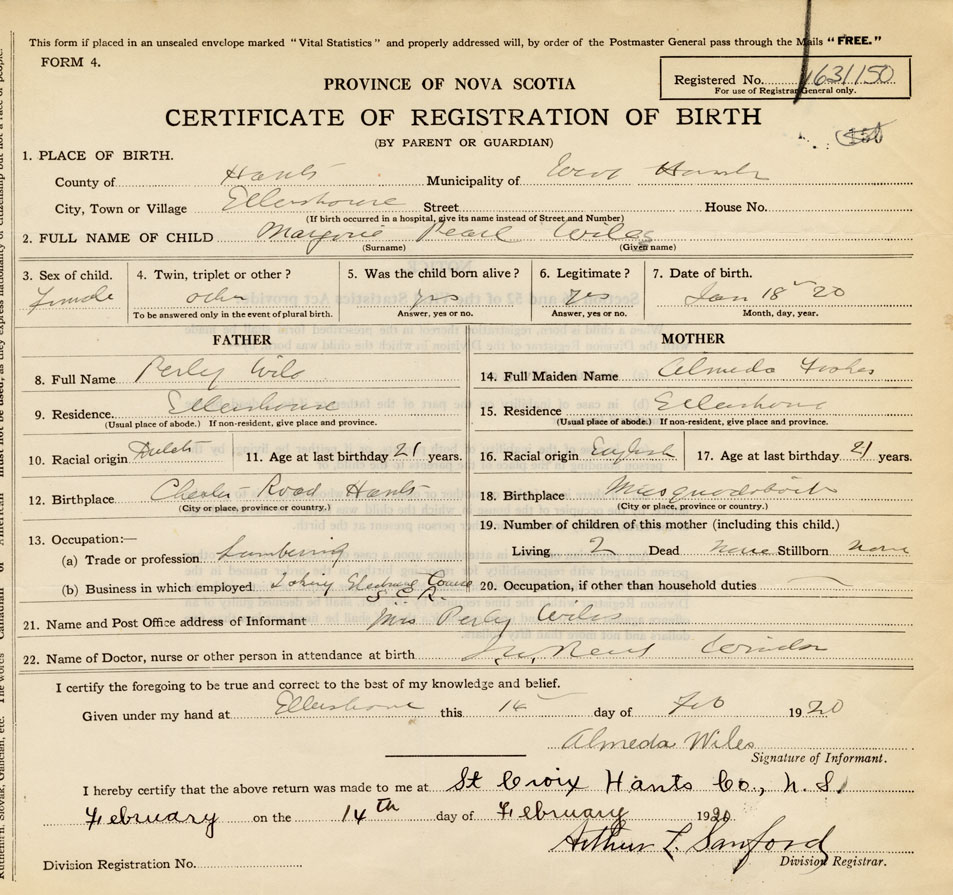 This form if placed in an unsealed envelope marked "Vital Statistics" and properly addressed will, by order of the Postmaster General pass through the Mails "FREE."
FORM 4.
Registered No. 1631150
For use of Registrar General only.
PROVINCE OF NOVA SCOTIA
CERTIFICATE OF REGISTRATION OF BIRTH
(BY PARENT OR GUARDIAN)
1. PLACE OF BIRTH.
County of Hants Municipality of West Hants
City, Town or Village Ellershouse Street House No.
(If birth occurred in a hospital, give its name instead of Street and Number)
2. FULL NAME OF CHILD Marjorie Pearl Wiles
(Surname) (Given name)
3. Sex of child. 4. Twin, triplet or other? 5. Was the child born alive? 6. Legitimate? 7. Date of birth.
Female other yes yes Jan 18 20
To be answered only in the event of plural birth. Answer, yes or no. Answer, yes or no. Month, day, year.
FATHER
8. Full Name Perley Wils
9. Residence. Ellershouse
(Usual place of abode.) If non-resident, give place and province.
10. Racial origin Dutch 11. Age at last birthday 21 years.
12. Birthplace Chester Road Hants
(City or place, province or country.)
13. Occupation:—
(a) Trade or profession Lumbering
(b) Business in which employed
MOTHER
14. Full Maiden Name Almeda
15. Residence Ellershouse
(Usual place of abode.) If non-resident, give place and province.
16. Racial origin English 17. Age at last birthday 21 years.
18. Birthplace Musquodoboit
(City or place, province or country.)
19. Number of children of this mother (including this child.)
Living 2 Dead none Stillborn none
20. Occupation, if other than household duties
21. Name and Post Office address of Informant Mrs Perly Wiles
22. Name of Doctor, nurse or other person in attendance at birth Windsor
I certify the foregoing to be true and correct to the best of my knowledge and belief.
Given under my hand at Ellershouse this 14 day of Feb 1920
Almeda Wiles
Signature of Informant.
I hereby certify that the above return was made to me at St Croix Hants Co., N.S.
February on the 14th day of February 1920.
Arthur L. Sanford
Division Registrar.
Division Registration No.